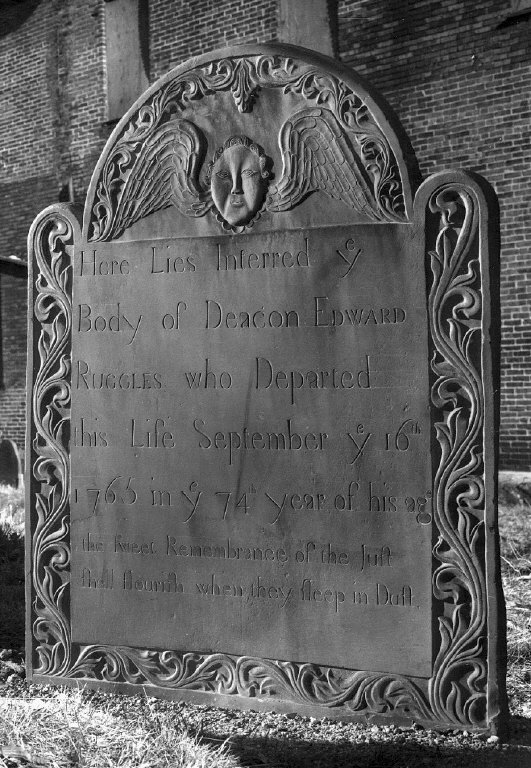 Here Lies Interred yᵉ
Body of Deacon EDWARD
RUGGLES who Departed
this Life September yᵉ 16ᵗʰ
1765 in yᵉ 74ᵗʰ year of his agᵉ
the ſweet Remembrance of the Juſt
ſhall flouriſh when they ſleep in Duſt.